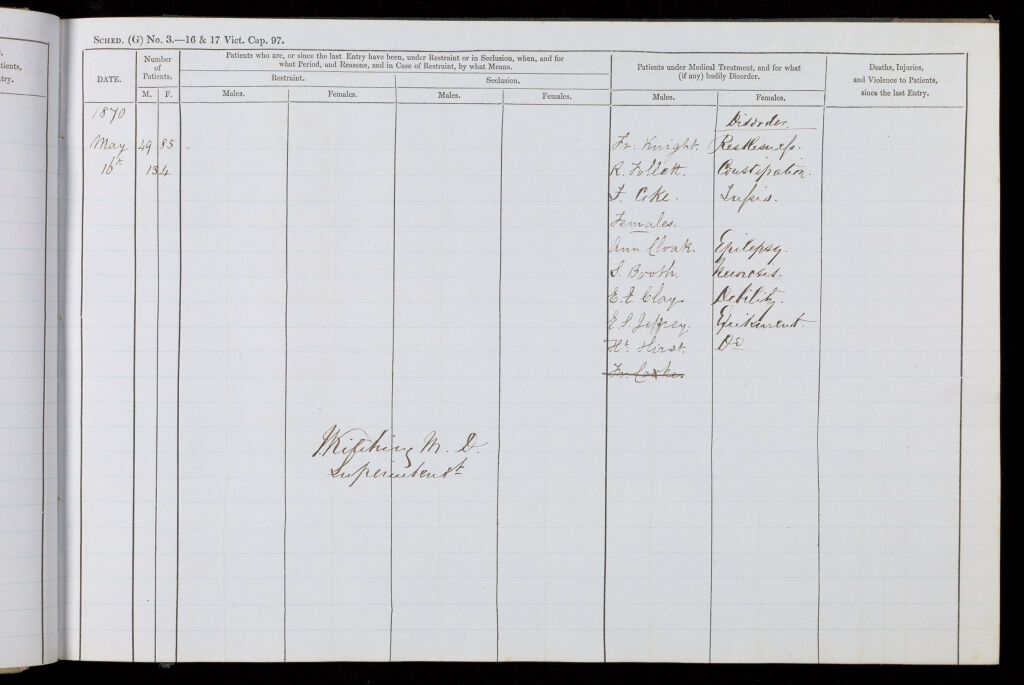 SCHED. (G) No. 3.—16 & 17 Vict. Cap. 97.
DATE.
Number of Patients.
M. F.
Patients who are, or since the last Entry have been, under Restraint or in Seclusion, when, and for
what Period, and Reasons, and in Case of Restraint, by what Means.
Restraint.
Seclusion.
Males. Females. Males. Females.
Patients under Medical Treatment, and for what
(if any) bodily Disorder.
Males. Females.
Deaths, Injuries,
and Violence to Patients,
since the last Entry.
1870
Disorder.
May 49 85 Fr. Knight. Restlessness.
16th 134 R. Follett. Constipation.
F. Coke.
Females.
Ann Cloak. Epilepsy.
S. Booth.
E. E. Clay. Debility.
E. S. Jeffrey. Excitement.
Ht. Hirst. Do
Fr. Cooke.
Kitching M. D.
Superintendt
tients,
try.